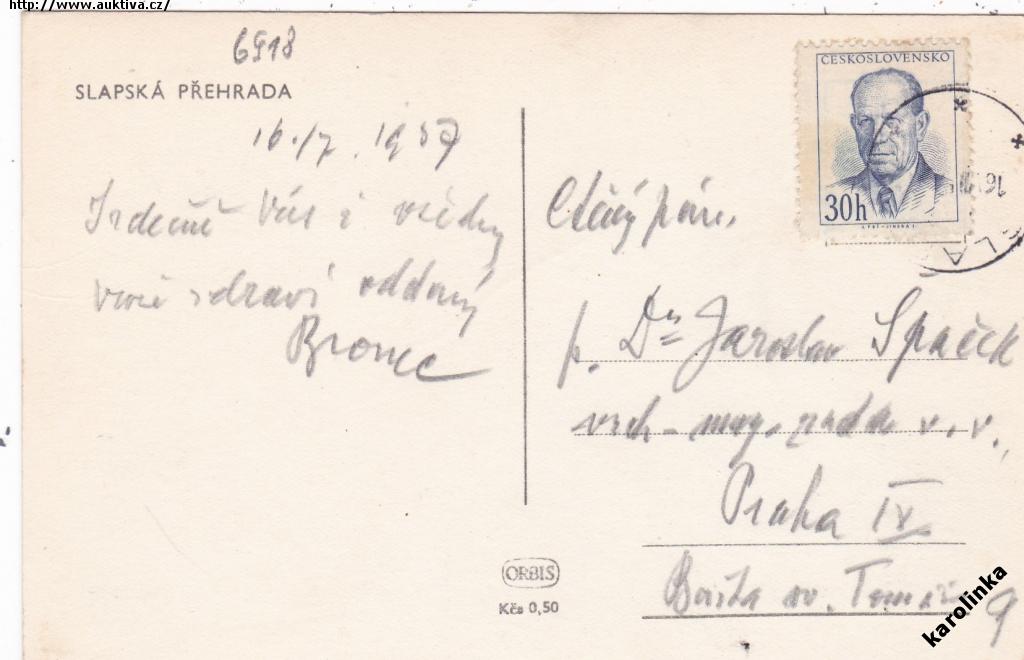 http://www.auktiva.cz/
6918
SLAPSKÁ PŘEHRADA
16./7. 1957
Srdečně Vás i všechny
zdraví oddaný
Bronec
Ctěný pán,
p. Dr Jaroslav Spaček
vrch. mag. rada v. v.,
Praha IV
sv. Tomáše 9
ČESKOSLOVENSKO
30h
ORBIS
Kčs 0,50
karolinka